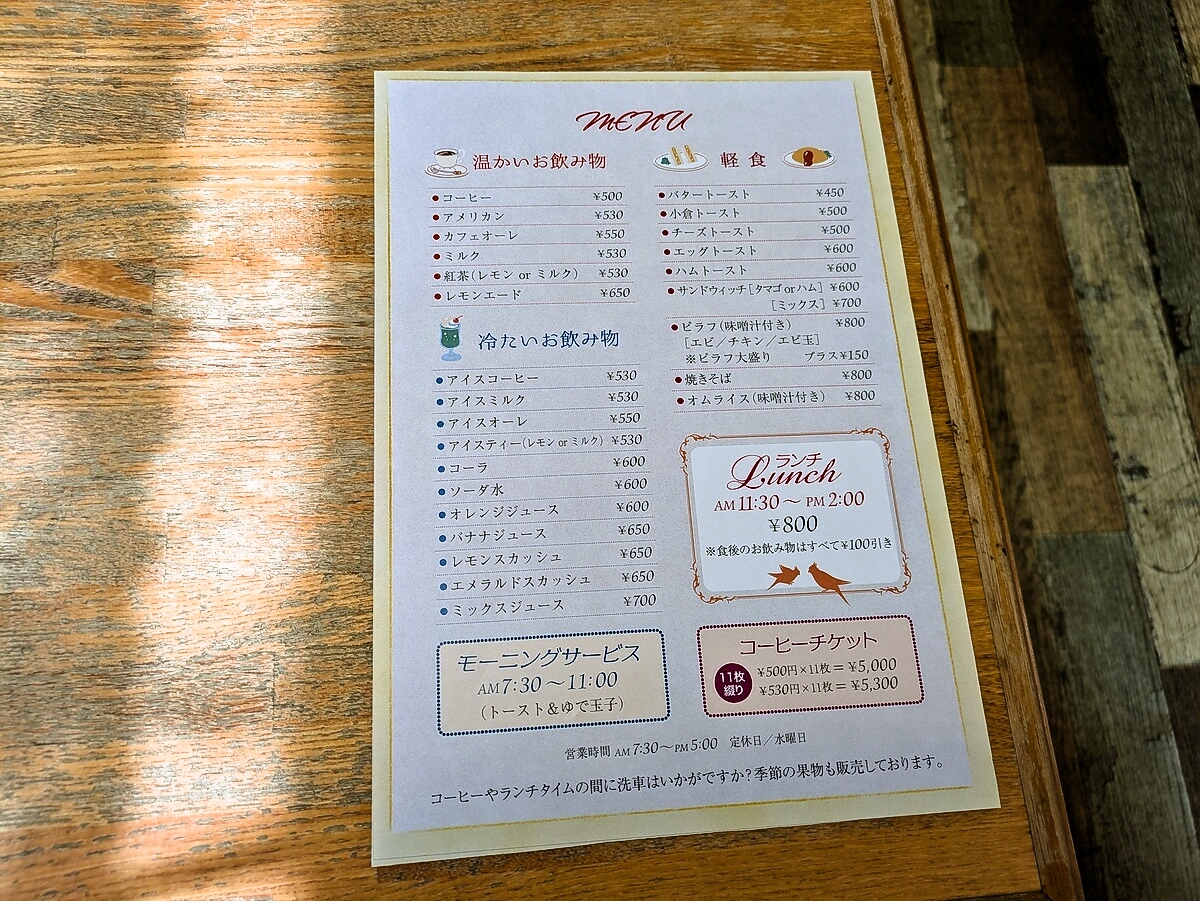 MENU
温かいお飲み物
コーヒー ¥500
アメリカン ¥530
カフェオーレ ¥550
ミルク ¥530
紅茶(レモン or ミルク) ¥530
レモンエード ¥650
冷たいお飲み物
アイスコーヒー ¥530
アイスミルク ¥530
アイスオーレ ¥550
アイスティー(レモン or ミルク) ¥530
コーラ ¥600
ソーダ水 ¥600
オレンジジュース ¥600
バナナジュース ¥650
レモンスカッシュ ¥650
エメラルドスカッシュ ¥650
ミックスジュース ¥700
モーニングサービス
AM 7:30～11:00
(トースト&ゆで玉子)
軽食
バタートースト ¥450
小倉トースト ¥500
チーズトースト ¥500
エッグトースト ¥600
ハムトースト ¥600
サンドウィッチ[タマゴ or ハム] ¥600
[ミックス] ¥700
ピラフ(味噌汁付き) ¥800
[エビ／チキン／エビ玉]
※ピラフ大盛り プラス¥150
焼きそば ¥800
オムライス(味噌汁付き) ¥800
ランチ
Lunch
AM 11:30～PM 2:00
¥800
※食後のお飲み物はすべて¥100引き
コーヒーチケット
11枚
綴り
¥500円×11枚＝¥5,000
¥530円×11枚＝¥5,300
営業時間 AM 7:30～PM 5:00 定休日／水曜日
コーヒーやランチタイムの間に洗車はいかがですか？季節の果物も販売しております。